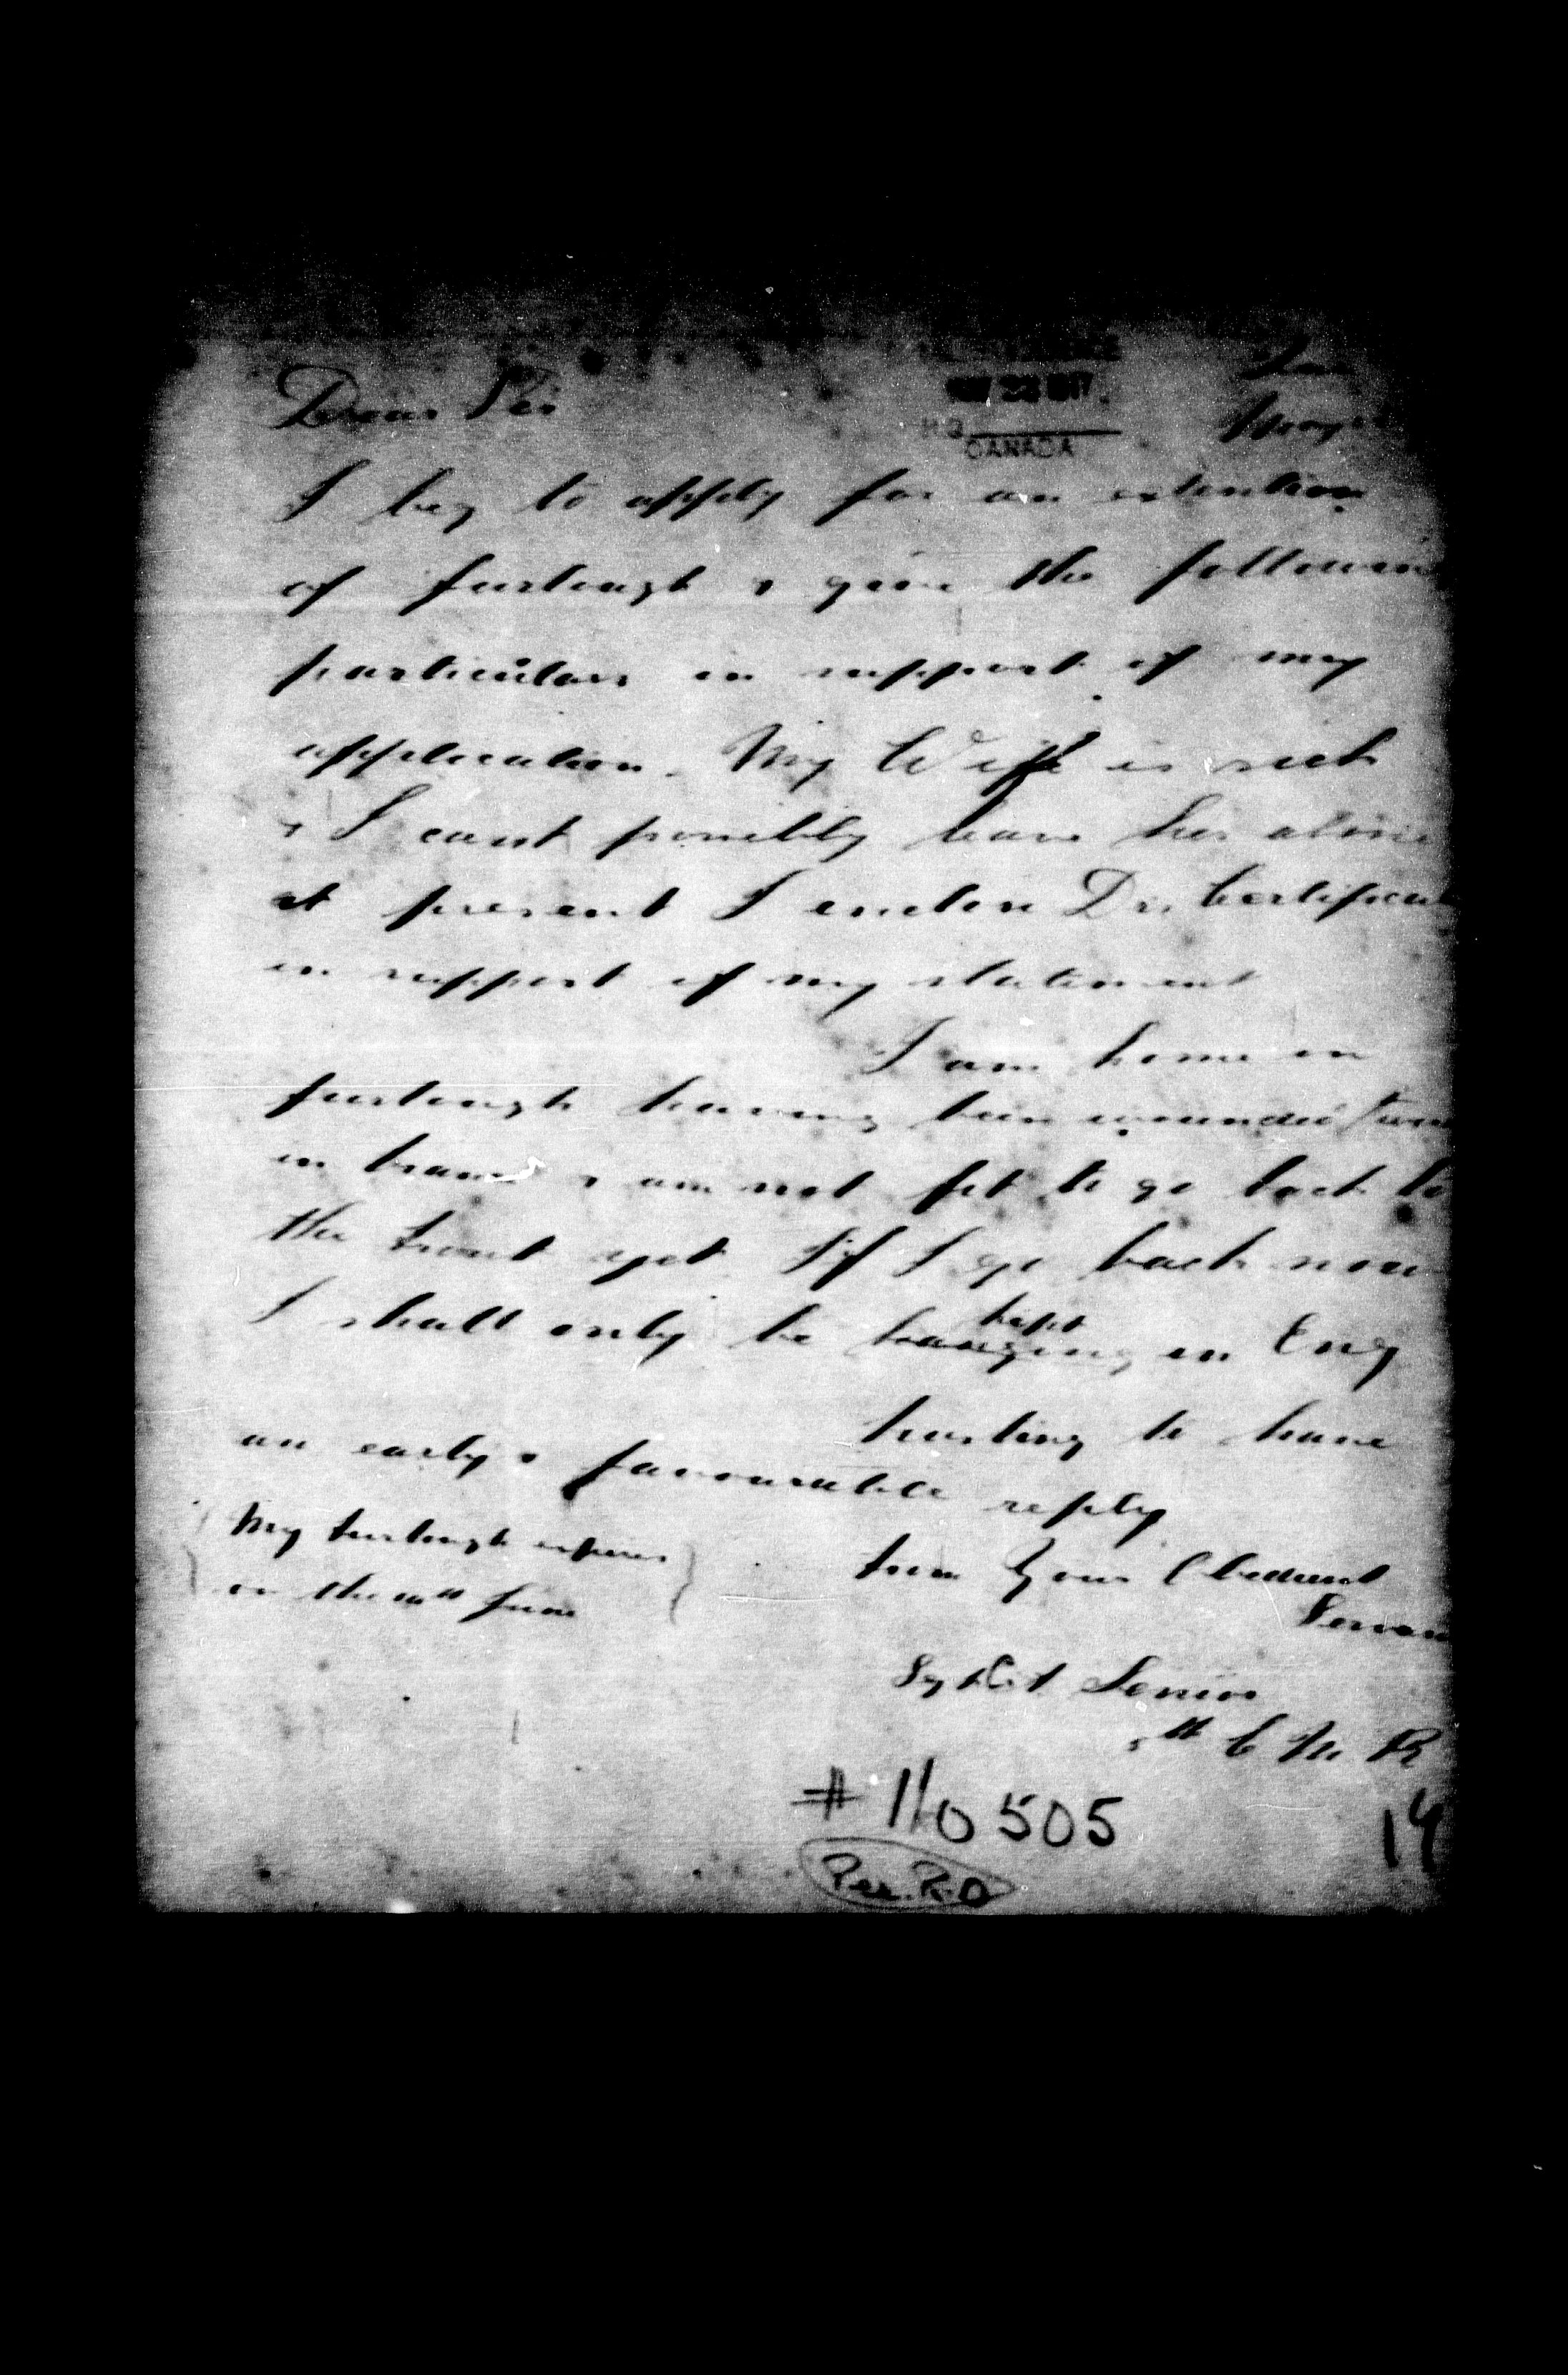 Dear Sir
MAY 22 1917
H.Q.
CANADA
May
I beg to apply for an extention
of furlough & give the followin
particulars in support of my
application. My Wife is sick
& I cant possibly leave her alone
at present I enclose Drs Certificat
in support of my statement
I am home on
furlough having been wounded twice
in France & am not fit to go back to
the Front yet & if I go back now
I shall only be kept hanging in Eng
trusting to have
an early & favourable reply
My furlough expires
on the 10th June
from Your Obedient
Servan
Sgt Senior
5th C M R
# 110505
Per. R.O
14